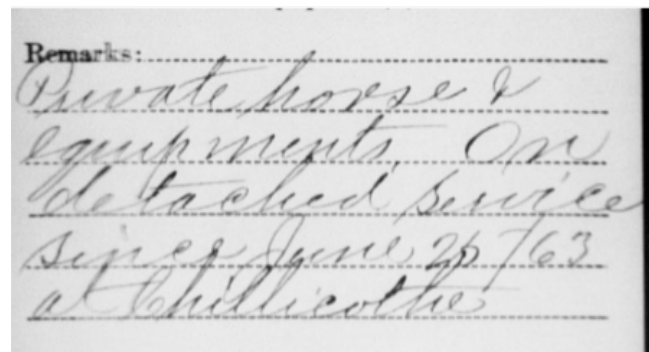 Remarks:
Private horse &
equipments. On
detached service
since June 25/63
at Chillicothe